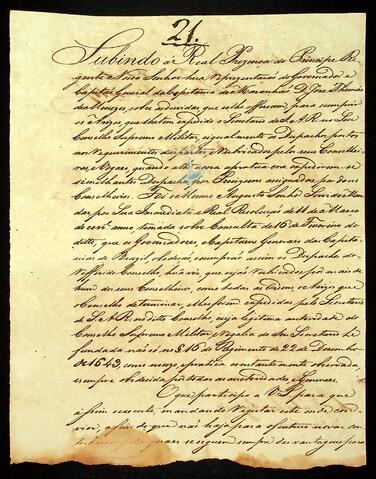 21.
Subindo á Real Prezença do Principe Re
gente Nosso Senhor huma Reprezentação do Governador e
Capitão General da Capitania do Maranhão D. Joze Thomas
de Menezes, sobre as duvidas que se lhe offerecem, para cumprir
os Avizos, que lhe tem expedido o Secretario de S. A. R. no Seu
Conselho Supremo Militar, e igualmente os Despachos postos
nos Requerimentos de partes, e Rubricados pelos seus Conselhei
ros, visto que athé agora a pratica era expedirem se
similhantes Despachos por Provizoens assignadas por dous
Conselheiros: Foi o Mesmo Augusto Senhor Servido Man
dar por Sua Immediata Real Resolução de 11 de Março
do corr.e anno, tomada sobre Consulta de 16 de Fevereiro do
ditto, que os Governadores, e Capitaens Generaes das Capita
nias do Brazil obedeção, e cumprão assim os Despachos do
referido Conselho, huma vez, que sejão Rubricados por mais de
hum dos seus Conselheiros, como todas as Ordens, e Avizos que
o Conselho determinar, e lhes forem expedidos pelo Secretario
de S. A. R. no ditto Conselho, cuja legitima autoridade do
Conselho Supremo Militar, e Regalia do seu Secretario hé
fundada não só no § 16 do Regimento de 22 de Dezembro
de 1643, como no uzo, e pratica constantemente observada,
e sempre obedecida por todas as autoridades, e Generaes.
O que participo a V. S.ª para que
assim o execute, mandando Registar este onde con
vier, a fim de que não haja para o futuro novas con
sequem sempre desvantagens para